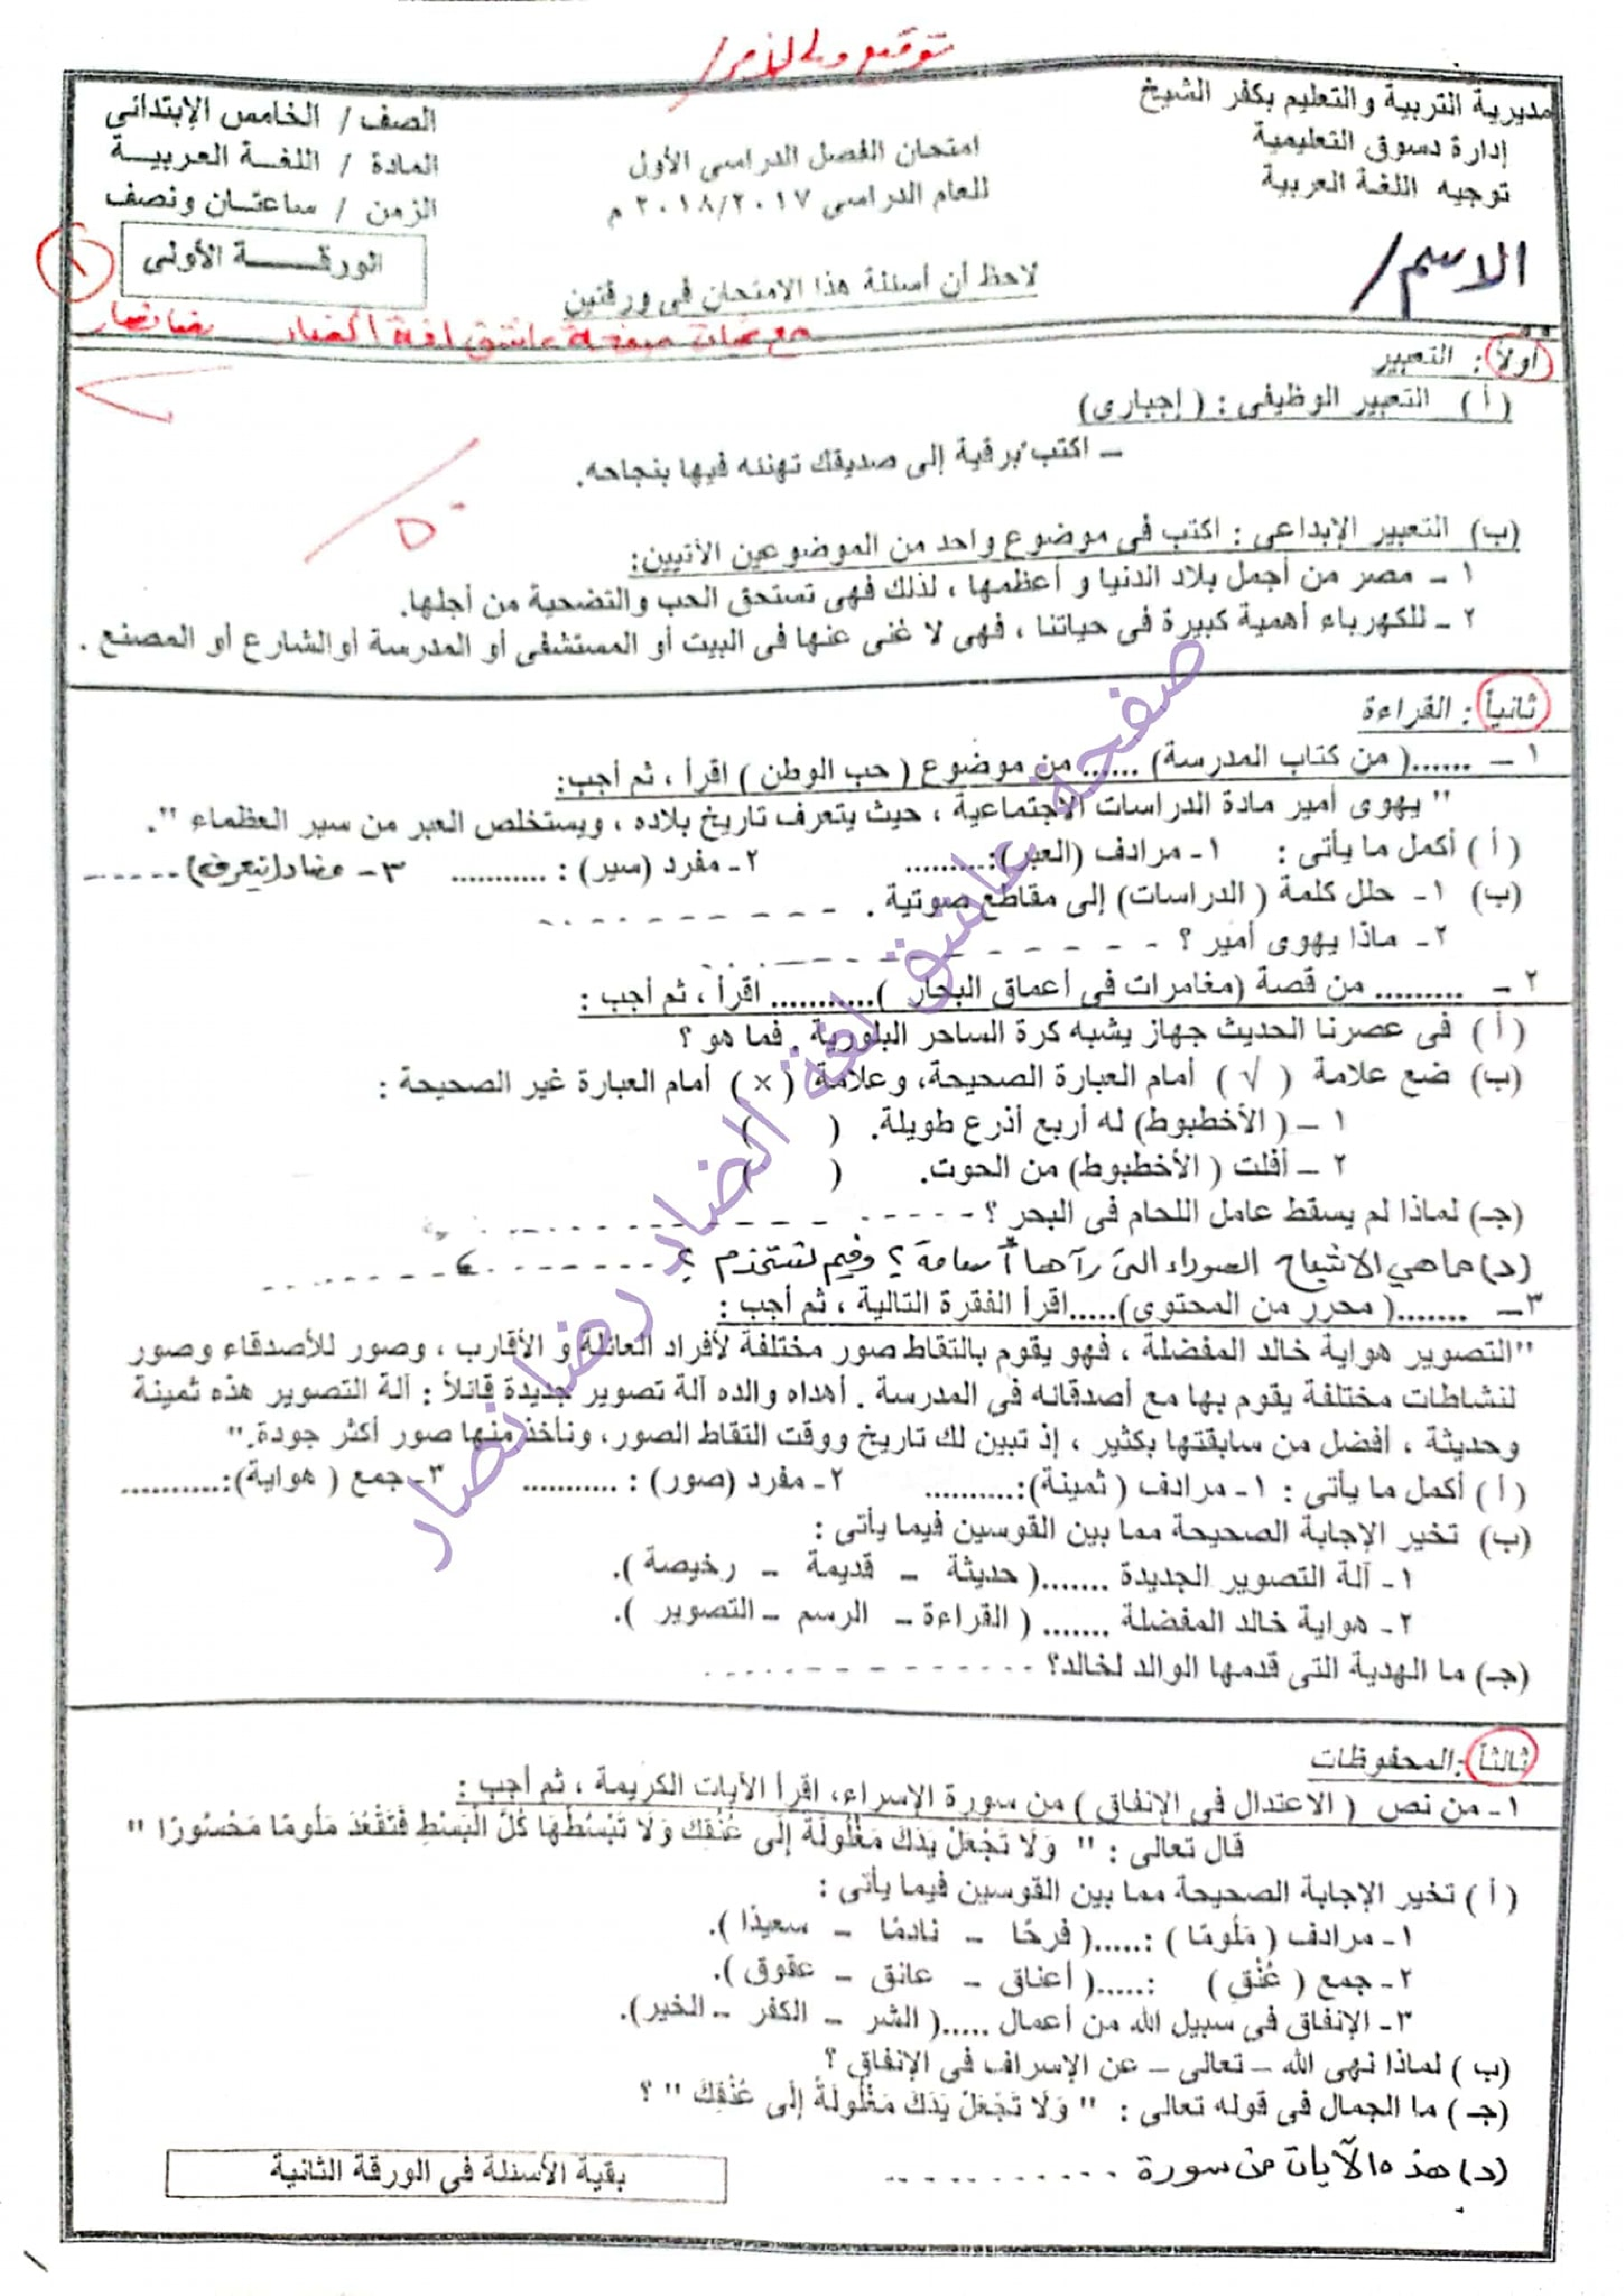 توقيع ولى الأمر/
مديرية التربية والتعليم بكفر الشيخ
إدارة دسوق التعليمية
توجيه اللغة العربية
الاسم/
امتحان الفصل الدراسى الأول
للعام الدراسى ٢٠١٨/٢٠١٧ م
لاحظ أن أسئلة هذا الامتحان فى ورقتين
الصف / الخامس الإبتدائى
المادة / اللغة العربية
الزمن / ساعتان ونصف
الورقة الأولى
١
مع تحيات صفحة عاشق لغة الضاد رضا نصار
أولاً: التعبير
(أ) التعبير الوظيفى : (إجبارى)
– اكتب برقية إلى صديقك تهنئه فيها بنجاحه.
٥٠
(ب) التعبير الإبداعى : اكتب فى موضوع واحد من الموضوعين الآتيين:
١ – مصر من أجمل بلاد الدنيا و أعظمها ، لذلك فهى تستحق الحب والتضحية من أجلها.
٢ – للكهرباء أهمية كبيرة فى حياتنا ، فهى لا غنى عنها فى البيت أو المستشفى أو المدرسة أوالشارع أو المصنع .
ثانياً : القراءة
١ – ......( من كتاب المدرسة) ...... من موضوع ( حب الوطن ) اقرأ ، ثم أجب:
" يهوى أمير مادة الدراسات الاجتماعية ، حيث يتعرف تاريخ بلاده ، ويستخلص العبر من سير العظماء ".
(أ) أكمل ما يأتى : ١- مرادف (العبر):.......... ٢- مفرد (سير) : ........... ٣- مضاد(يتعرف) ------
(ب) ١- حلل كلمة ( الدراسات) إلى مقاطع صوتية . - - - - - - - - -
٢- ماذا يهوى أمير ؟ - - - - - - - - - -
٢ – ......... من قصة (مغامرات فى أعماق البحار )........... اقرأ ، ثم أجب :
(أ) فى عصرنا الحديث جهاز يشبه كرة الساحر البلورية . فما هو ؟
(ب) ضع علامة ( √ ) أمام العبارة الصحيحة، وعلامة ( × ) أمام العبارة غير الصحيحة :
١ – ( الأخطبوط) له أربع أذرع طويلة. ( )
٢ – أفلت ( الأخطبوط) من الحوت. ( )
(جـ) لماذا لم يسقط عامل اللحام فى البحر ؟ - - - - - - - - - -
(د) ما هى الأشباح السوداء التى رآها أسامة ؟ وفيم تستخدم ؟ - - - - - - - - - -
٣– .......( محرر من المحتوى).....اقرأ الفقرة التالية ، ثم أجب :
"التصوير هواية خالد المفضلة ، فهو يقوم بالتقاط صور مختلفة لأفراد العائلة و الأقارب ، وصور للأصدقاء وصور
لنشاطات مختلفة يقوم بها مع أصدقائه فى المدرسة . أهداه والده آلة تصوير جديدة قائلاً : آلة التصوير هذه ثمينة
وحديثة ، أفضل من سابقتها بكثير ، إذ تبين لك تاريخ ووقت التقاط الصور، ونأخذ منها صور أكثر جودة."
(أ) أكمل ما يأتى : ١- مرادف ( ثمينة):.......... ٢- مفرد (صور) : ........... ٣- جمع ( هواية):...........
(ب) تخير الإجابة الصحيحة مما بين القوسين فيما يأتى :
١- آلة التصوير الجديدة .......( حديثة – قديمة – رخيصة ).
٢- هواية خالد المفضلة ....... ( القراءة – الرسم – التصوير ).
(جـ) ما الهدية التى قدمها الوالد لخالد؟ - - - - - - - - - -
ثالثاً :المحفوظات
١- من نص ( الاعتدال فى الإنفاق ) من سورة الإسراء، اقرأ الآيات الكريمة ، ثم أجب :
قال تعالى : " وَلَا تَجْعَلْ يَدَكَ مَغْلُولَةً إِلَى عُنُقِكَ وَلَا تَبْسُطْهَا كُلَّ الْبَسْطِ فَتَقْعُدَ مَلُومًا مَحْسُورًا "
(أ) تخير الإجابة الصحيحة مما بين القوسين فيما يأتى :
١- مرادف ( مَلُومًا ) :.....( فرحًا – نادمًا – سعيدًا ).
٢- جمع ( عُنُقِ ) :.....( أعناق – عانق – عقوق ).
٣- الإنفاق فى سبيل الله من أعمال .....( الشر – الكفر – الخير).
(ب) لماذا نهى الله – تعالى – عن الإسراف فى الإنفاق ؟
(جـ) ما الجمال فى قوله تعالى : " وَلَا تَجْعَلْ يَدَكَ مَغْلُولَةً إِلَى عُنُقِكَ " ؟
(د) هذه الآيات من سورة ............
بقية الأسئلة فى الورقة الثانية
صفحة عاشق لغة الضاد رضا نصار